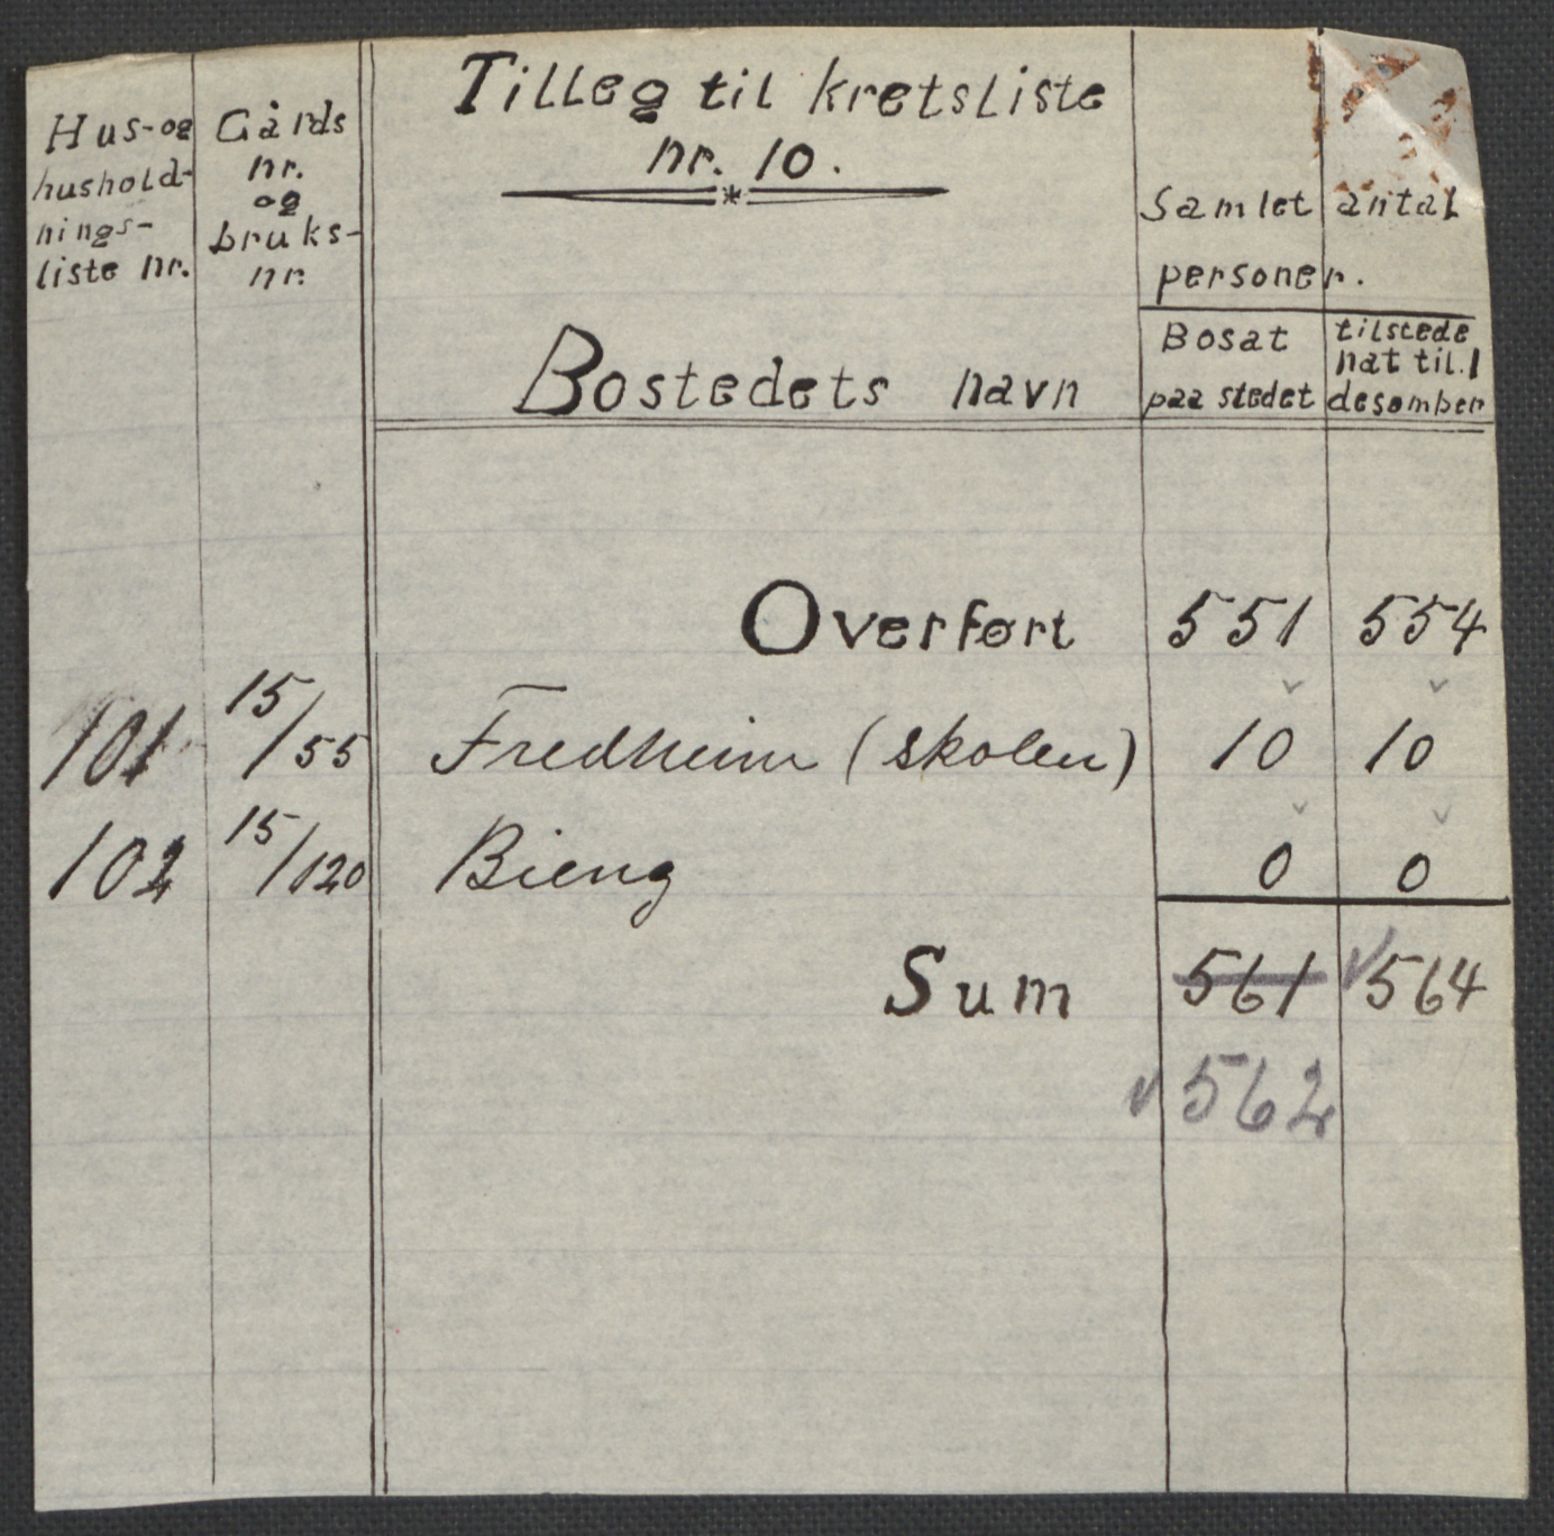 Tilleg til kretsliste
nr. 10.
Hus-og
hushold-
nings-
liste nr.
Gårds
nr.
og
bruks-
nr.
Bostedets navn
Samlet antal
personer.
Bosat
paa stedet
tilstede
nat til 1
desember
Overført 551 554
101 15/55 Fredheim (skolen) 10 10
102 15/120 Bieng 0 0
Sum 561 564
562